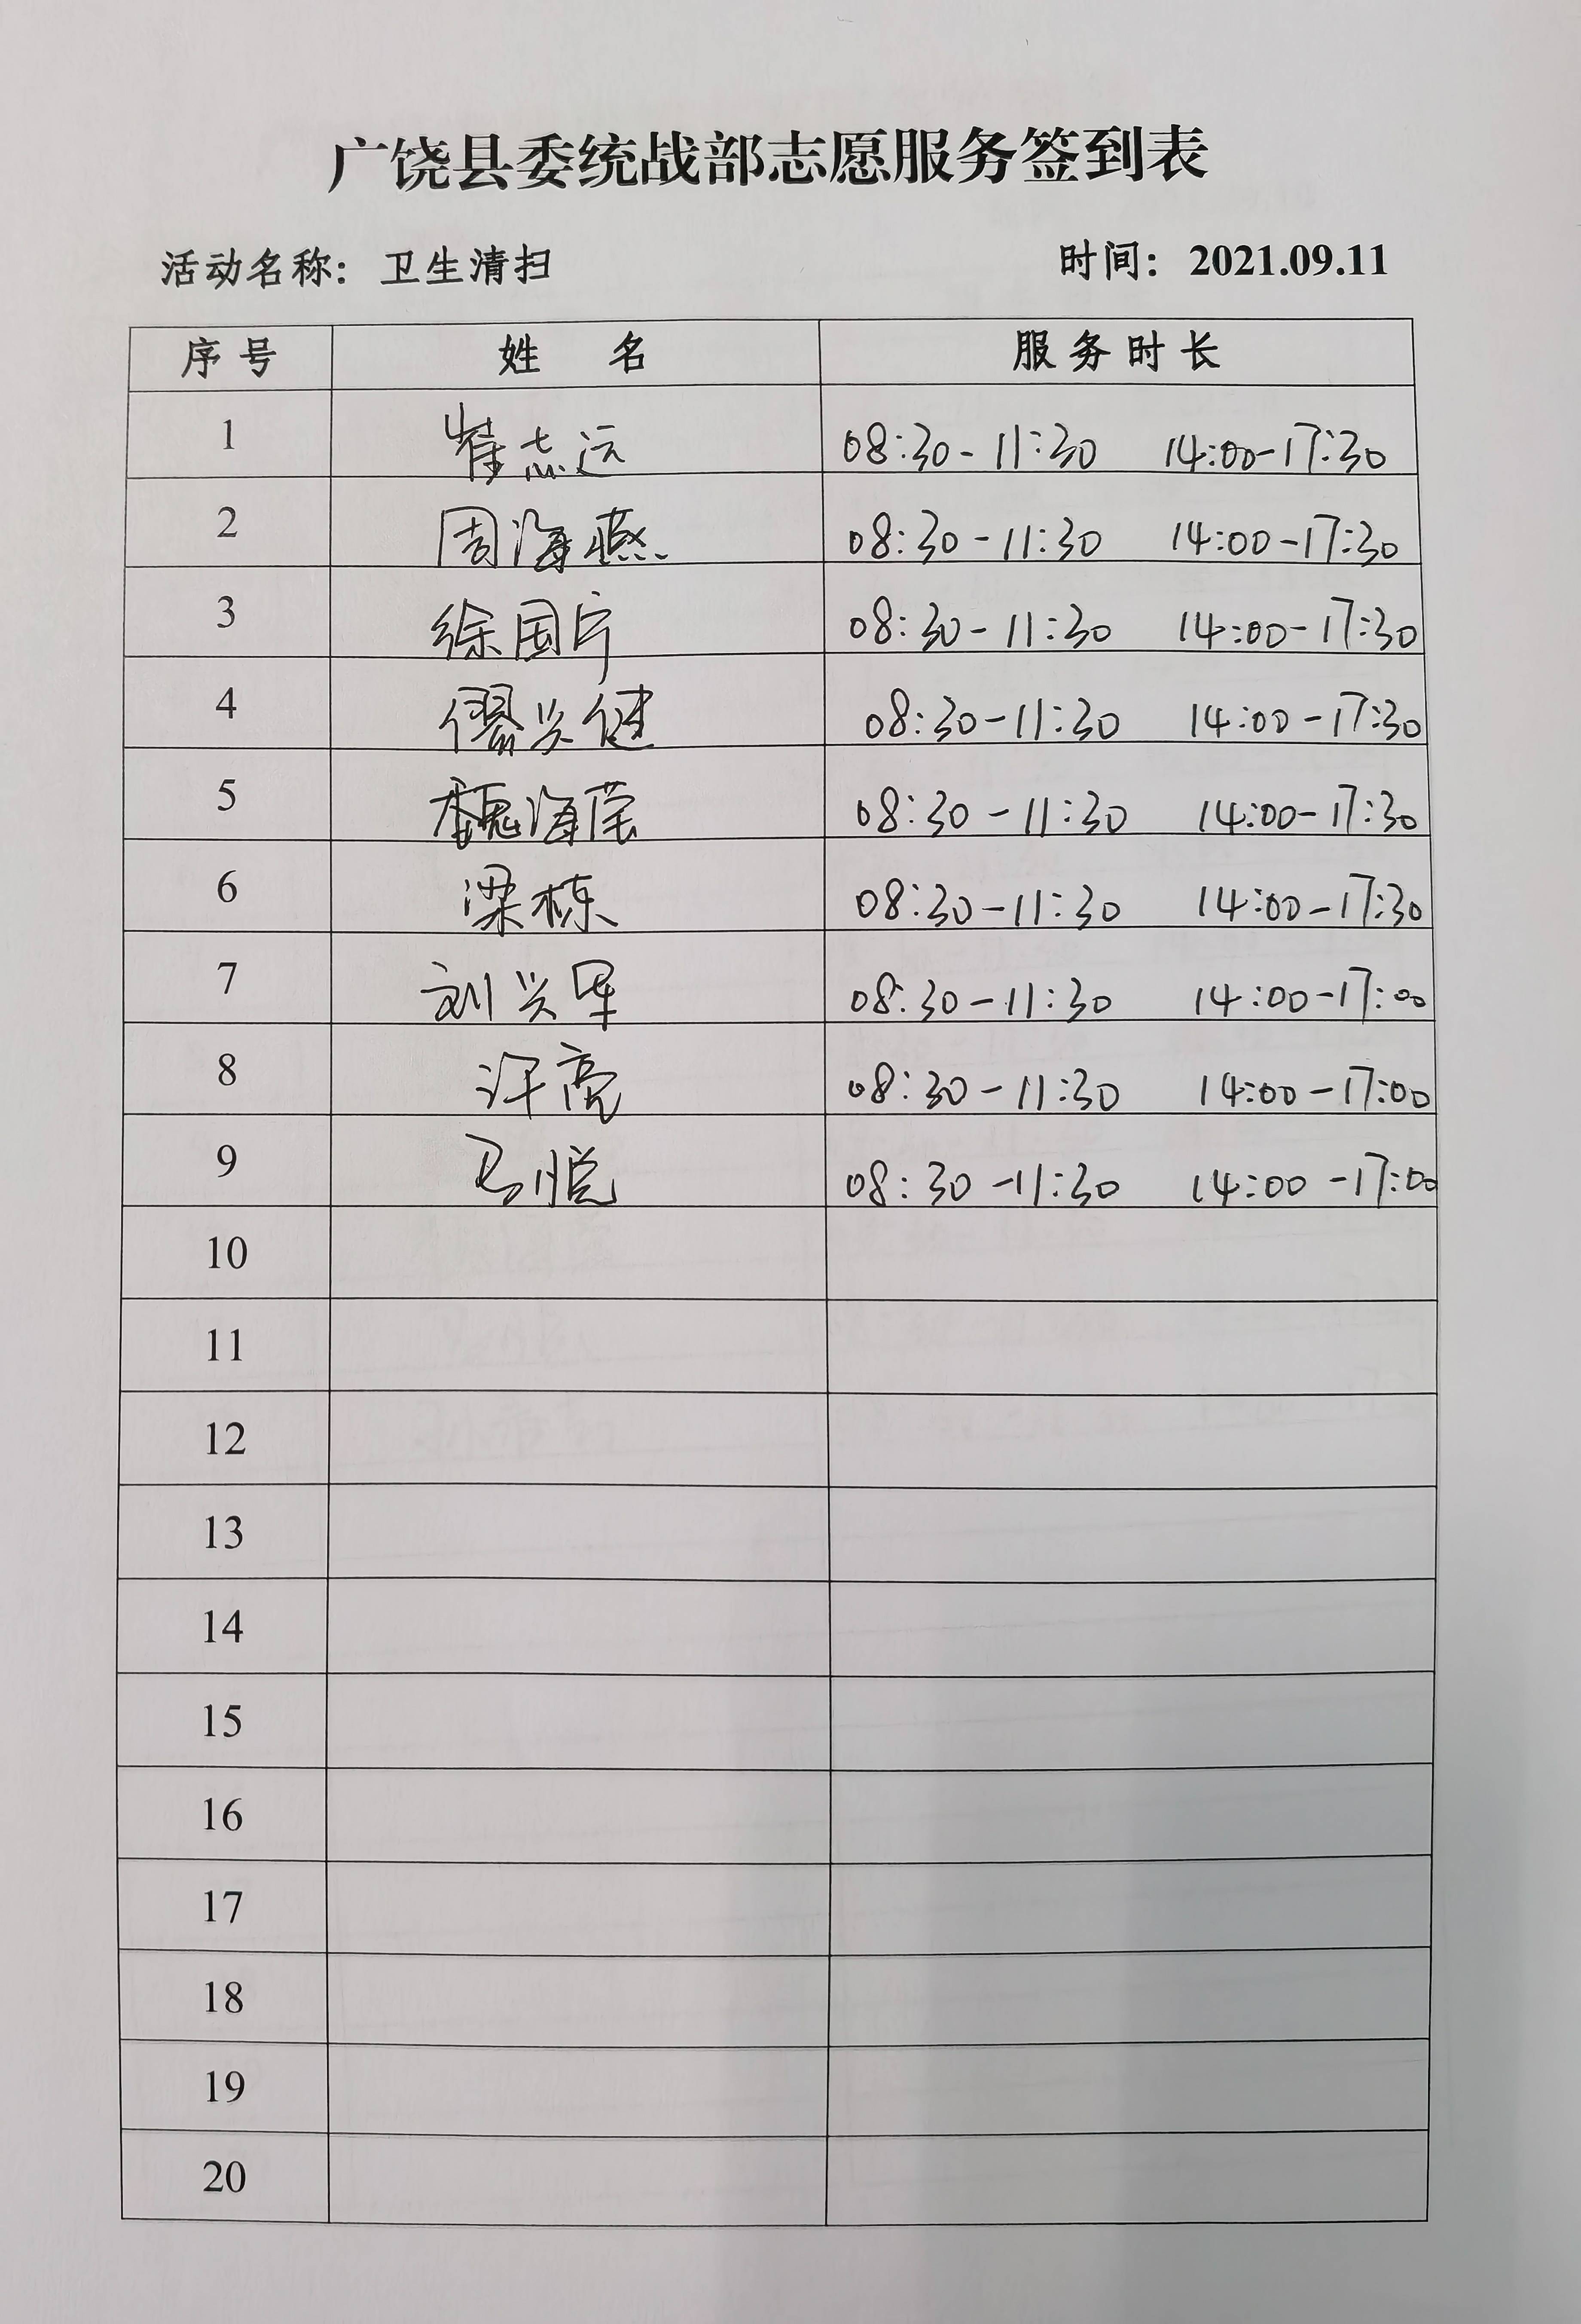 广饶县委统战部志愿服务签到表
活动名称：卫生清扫 时间：2021.09.11
序号 姓名 服务时长
1 崔志远 08:30-11:30 14:00-17:30
2 周海燕 08:30-11:30 14:00-17:30
3 徐国片 08:30-11:30 14:00-17:30
4 兴健 08:30-11:30 14:00-17:30
5 魏海莹 08:30-11:30 14:00-17:30
6 梁栋 08:30-11:30 14:00-17:30
7 刘兴军 08:30-11:30 14:00-17:00
8 许亮 08:30-11:30 14:00-17:00
9 马悦 08:30-11:30 14:00-17:00
10
11
12
13
14
15
16
17
18
19
20